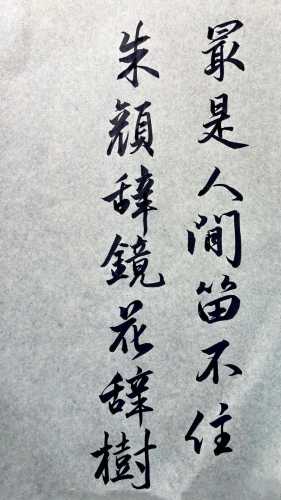 最是人間留不住
朱顏辭鏡花辭樹